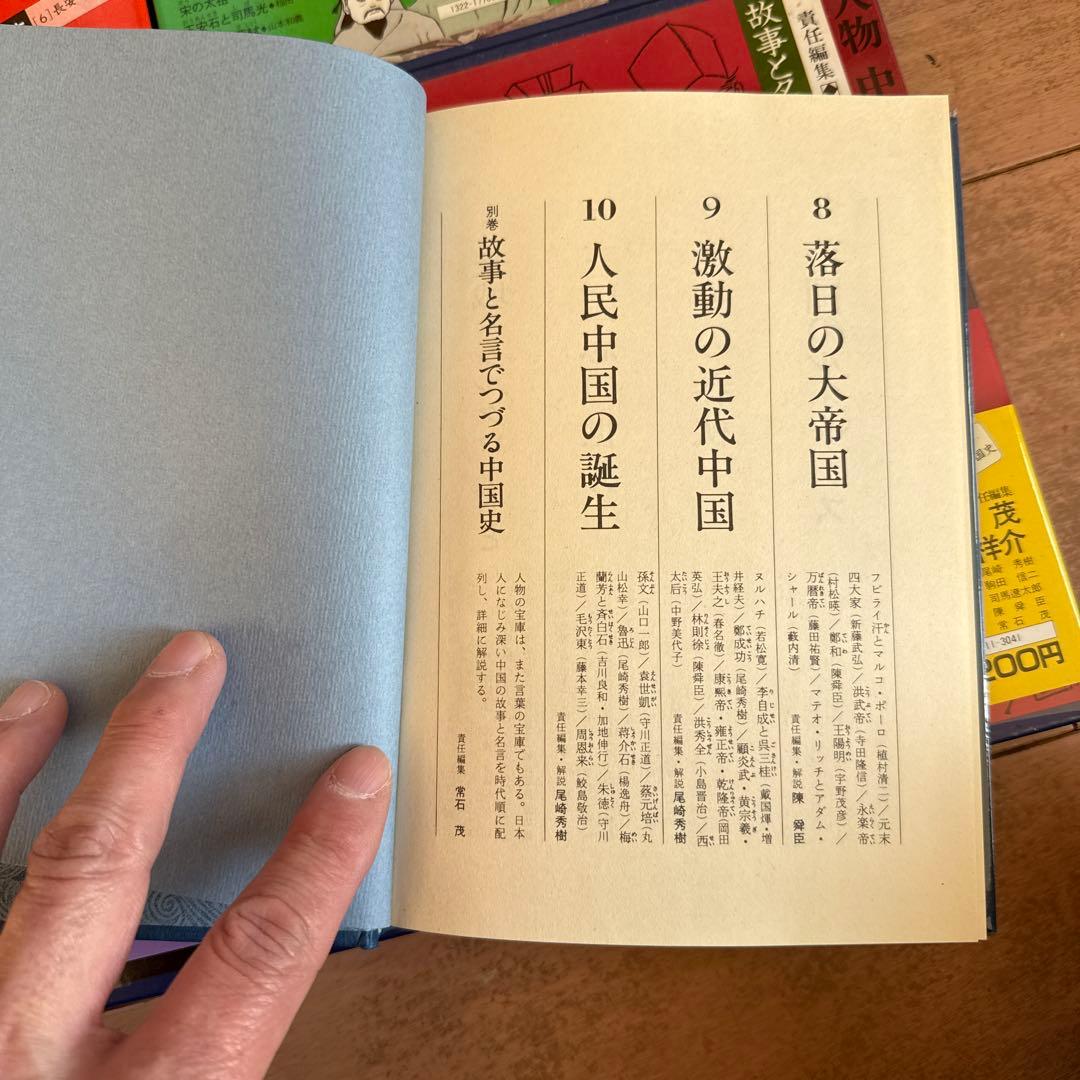 8
落日の大帝国
フビライ汗とマルコ・ポーロ(植村清二)/元末
四大家(新藤武弘)/洪武帝(寺田隆信)/永楽帝
(村松暎)/鄭和(陳舜臣)/王陽明(宇野茂彦)/
万暦帝(藤田祐賢)/マテオ・リッチとアダム・
シャール(藪内清)
責任編集・解説 陳 舜臣
9
激動の近代中国
ヌルハチ(若松寛)/李自成と呉三桂(戴国煇・増
井経夫)/鄭成功(尾崎秀樹)/顧炎武・黄宗羲・
王夫之(春名徹)/康熙帝・雍正帝・乾隆帝(岡田
英弘)/林則徐(陳舜臣)/洪秀全(小島晋治)/西
太后(中野美代子)
責任編集・解説 尾崎秀樹
10
人民中国の誕生
孫文(山口一郎)/袁世凱(守川正道)/蔡元培(丸
山松幸)/魯迅(尾崎秀樹)/蒋介石(楊逸舟)/梅
蘭芳と斉白石(吉川良和・加地伸行)/朱徳(守川
正道)/毛沢東(藤本幸三)/周恩来(鮫島敬治)
責任編集・解説 尾崎秀樹
別巻
故事と名言でつづる中国史
人物の宝庫は、また言葉の宝庫でもある。日本
人になじみ深い中国の故事と名言を時代順に配
列し、詳細に解説する。
責任編集 常石 茂
[6]長安
宋の太祖
王安石と司馬光
1322-1770
故事と
責任編集
人物中
国史
任編集
茂
祥介
尾崎 秀樹
駒田 信二
司馬遼太郎
陳 舜臣
常石 茂
11-3041
200円